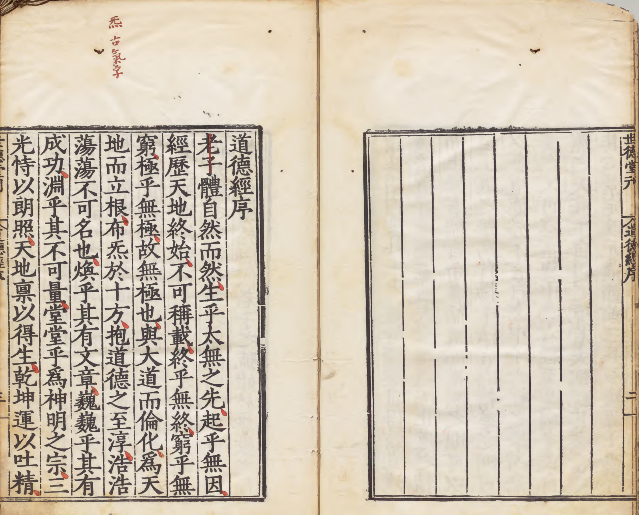 炁古氣字
道德經序
老子體自然而然生乎太無之先起乎無因
經歷天地終始不可稱載終乎無終窮乎無
窮極乎無極故無極也與大道而倫化為天
地而立根布炁於十方抱道德之至淳浩浩
蕩蕩不可名也煥乎其有文章巍巍乎其有
成功淵乎其不可量堂堂乎為神明之宗三
光恃以朗照天地禀以得生乾坤運以吐精
世德堂刊
道德經序